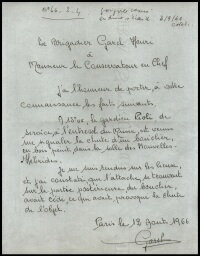 N° 66. 2. 4
Le Brigadier Garel Henri
à
Monsieur le Conservateur en Chef
J'ai l'honneur de porter à votre
connaissance les faits suivants.
le gardien
de service, à l'entresol du Musée, est venu
me signaler la chute d'un bouclier,
en bois peint dans la salle des Nouvelles-
Hébrides.
Je me suis rendu sur les lieux,
et j'ai constaté que l'attache, se trouvant
sur la partie postérieure du bouclier,
avait cédé, ce qui avait provoqué la chute
de l'objet.
Paris le 18 Août 1966
Garel